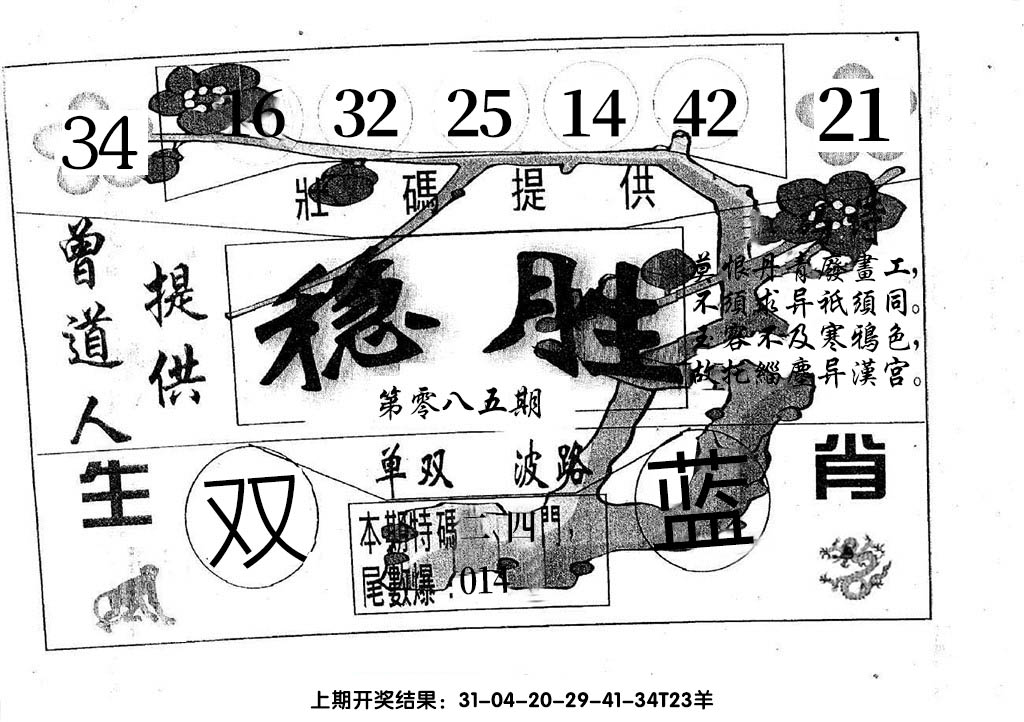 34 16 32 25 14 42 21
壯碼提供
特
曾道人
提供
稳胜
第零八五期
莫恨丹青廢畫工,
不須求异祇須同。
玉容不及寒鴉色,
故托緇塵异漢宮。
生肖
双
单双 波路
蓝
本期特碼二、四門,
尾數爆:014
上期开奖结果：31-04-20-29-41-34T23羊